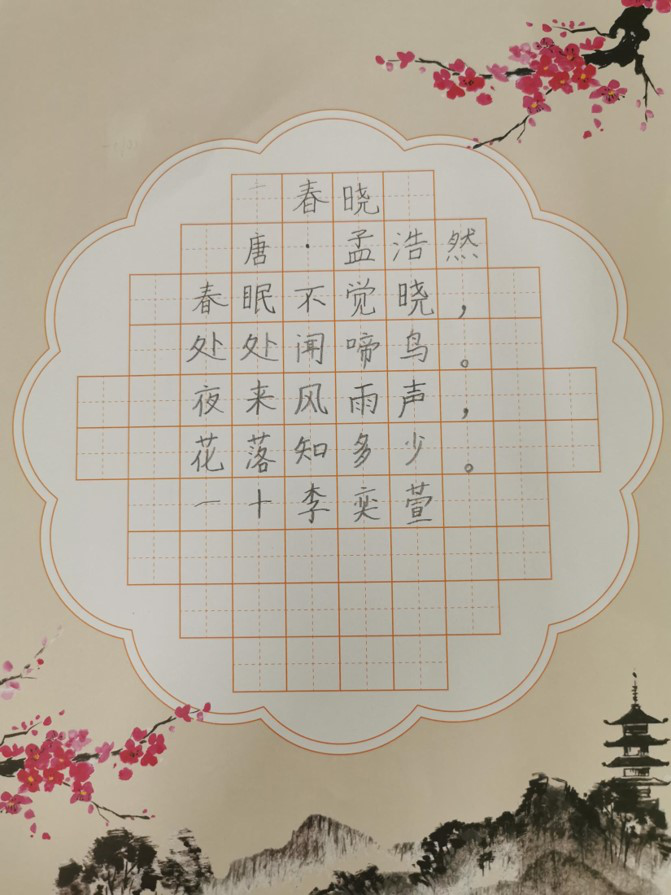 春晓
唐·孟浩然
春眠不觉晓，
处处闻啼鸟。
夜来风雨声，
花落知多少。
一十李奕萱